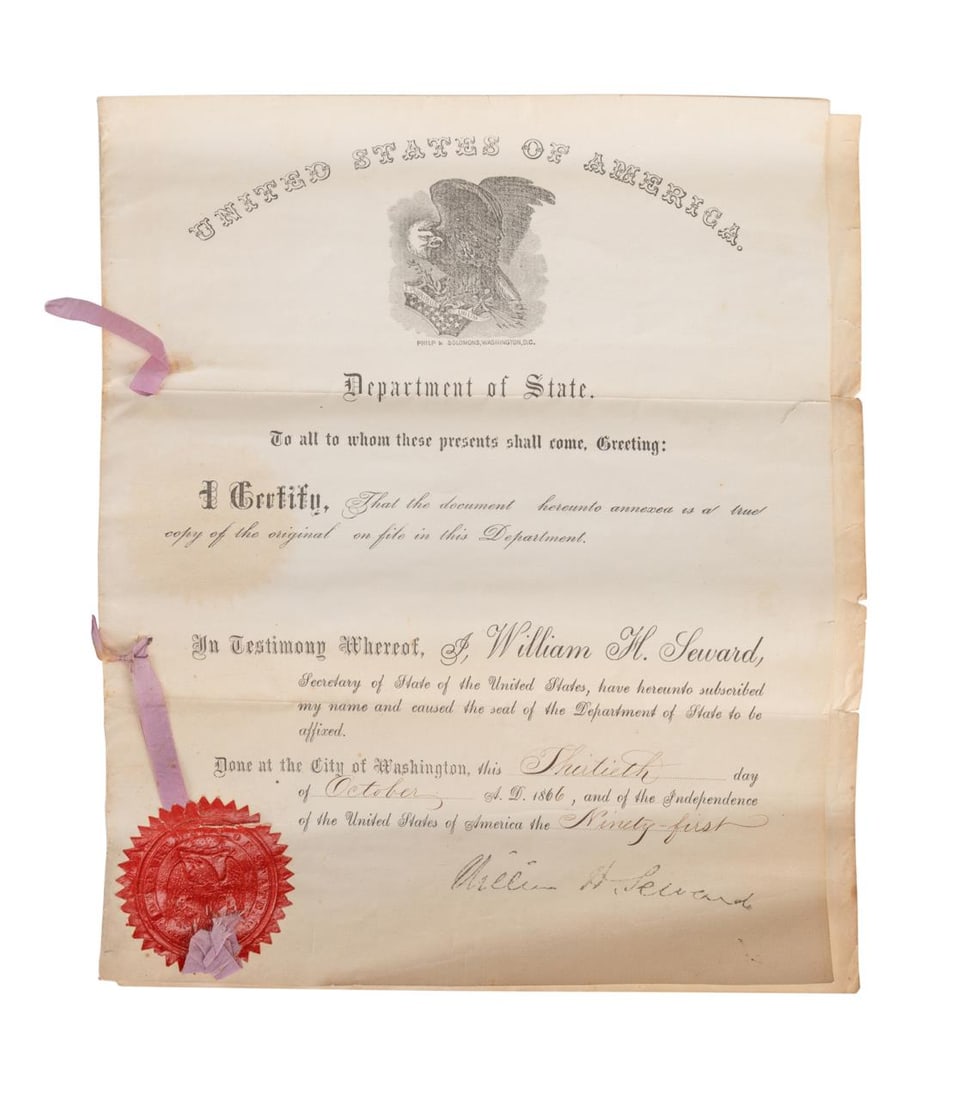 UNITED STATES OF AMERICA.
PHILP & SOLOMONS, WASHINGTON, D.C.
Department of State.
To all to whom these presents shall come, Greeting:
I Certify, That the document hereunto annexed is a true
copy of the original on file in this Department.
In Testimony Whereof, I, William H. Seward,
Secretary of State of the United States, have hereunto subscribed
my name and caused the seal of the Department of State to be
affixed.
Done at the City of Washington, this Thirtieth day
of October A.D. 1866, and of the Independence
of the United States of America the Ninety-first
William H. Seward